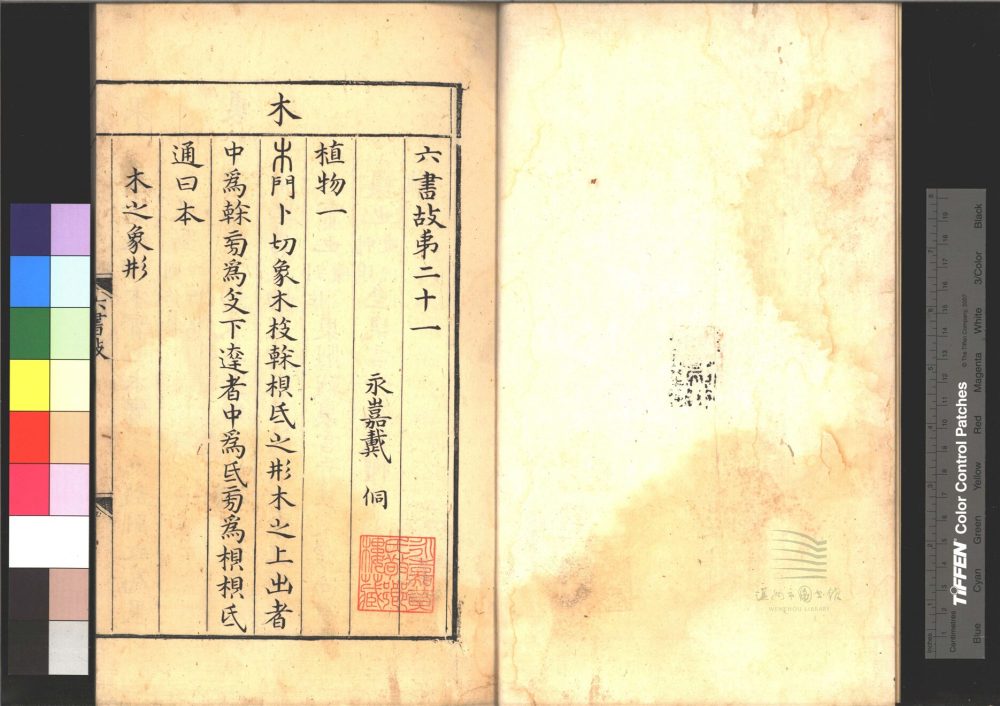 木
六書故弟二十一
永嘉戴 侗
植物一
木門卜切象木枝榦根氐之形木之上出者
中爲榦㫄爲攴下達者中爲氐㫄爲根根氐
通曰本
木之象形
六書故
溫州市圖書館
WENZHOU LIBRARY
TIFFEN Color Control Patches
© The Tiffen Company, 2007
Inches
Centimetres
Blue Cyan Green Yellow Red Magenta White 3/Color Black